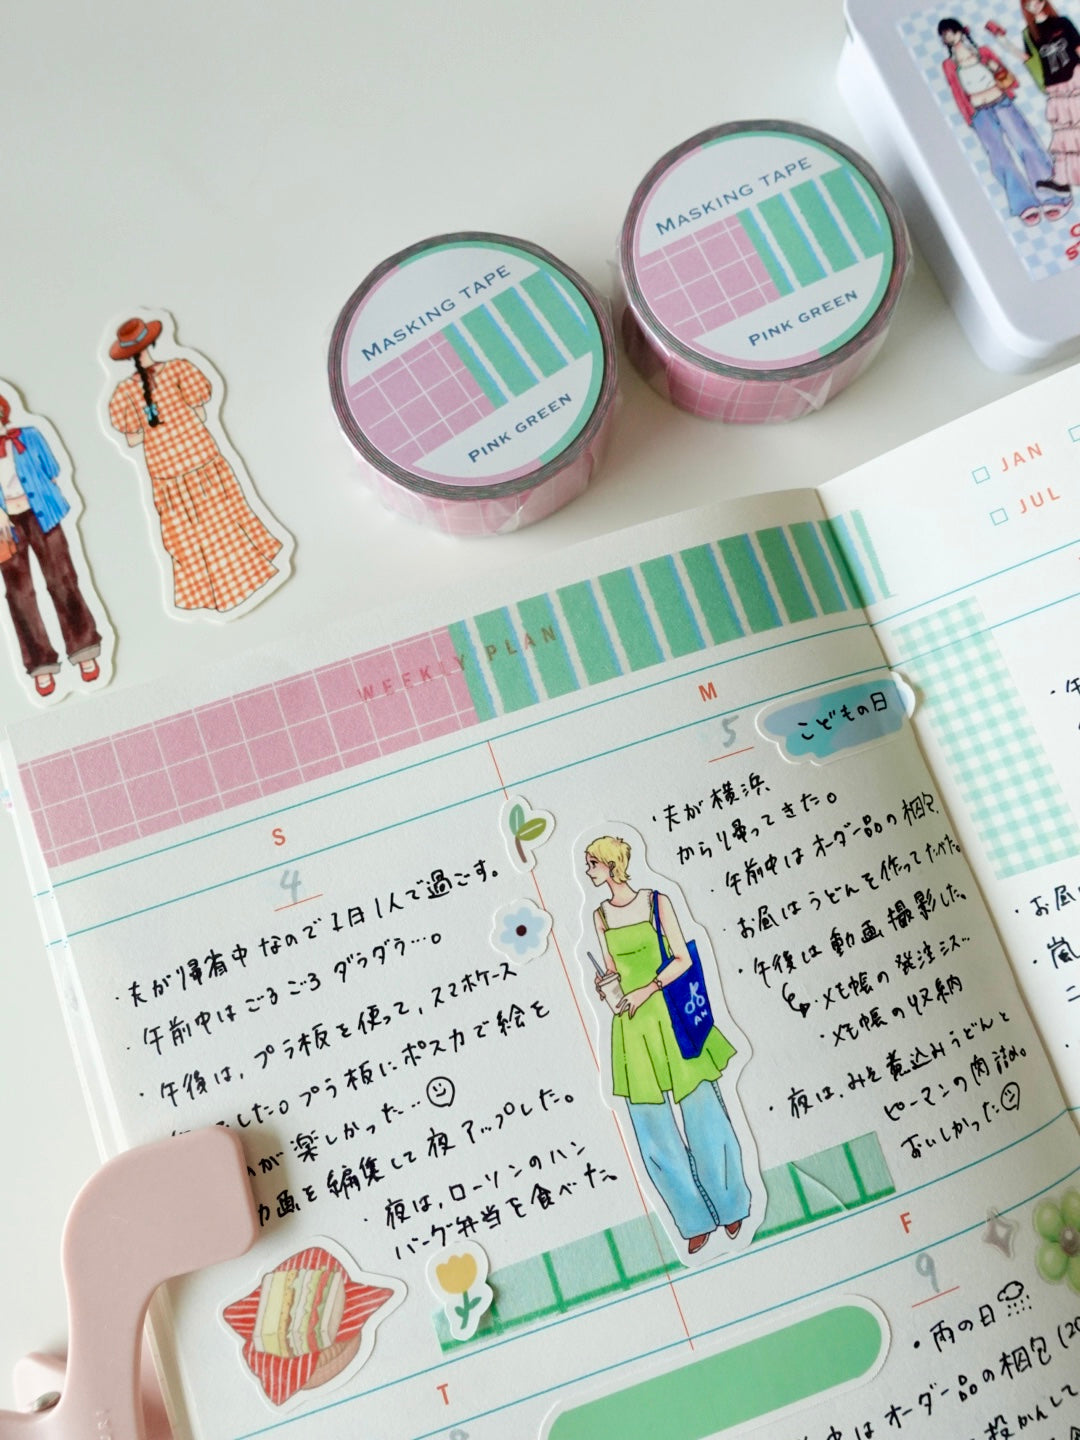 MASKING TAPE
PINK GREEN
MASKING TAPE
PINK GREEN
JAN
JUL
WEEKLY PLAN
S
4
・夫が帰省中なので1日1人で過ごす。
・午前中はごろごろダラダラ…。
・午後は、プラ板を使って、スマホケース
した。プラ板にポスカで絵を
が楽しかった…
画を編集して夜アップした。
・夜は、ローソンのハン
バーグ弁当を食べた。
M
5
こどもの日
・夫が横浜
から帰ってきた。
・午前中はオーダー品の梱包。
お昼はうどんを作ってたべた。
・午後は動画撮影した。
・メモ帳の発注
・メモ帳の収納
・夜は、みそ煮込みうどんと
ピーマンの肉詰め。
おいしかった
AN
・お昼
・嵐
T
F
9
・雨の日
中はオーダー品の梱包